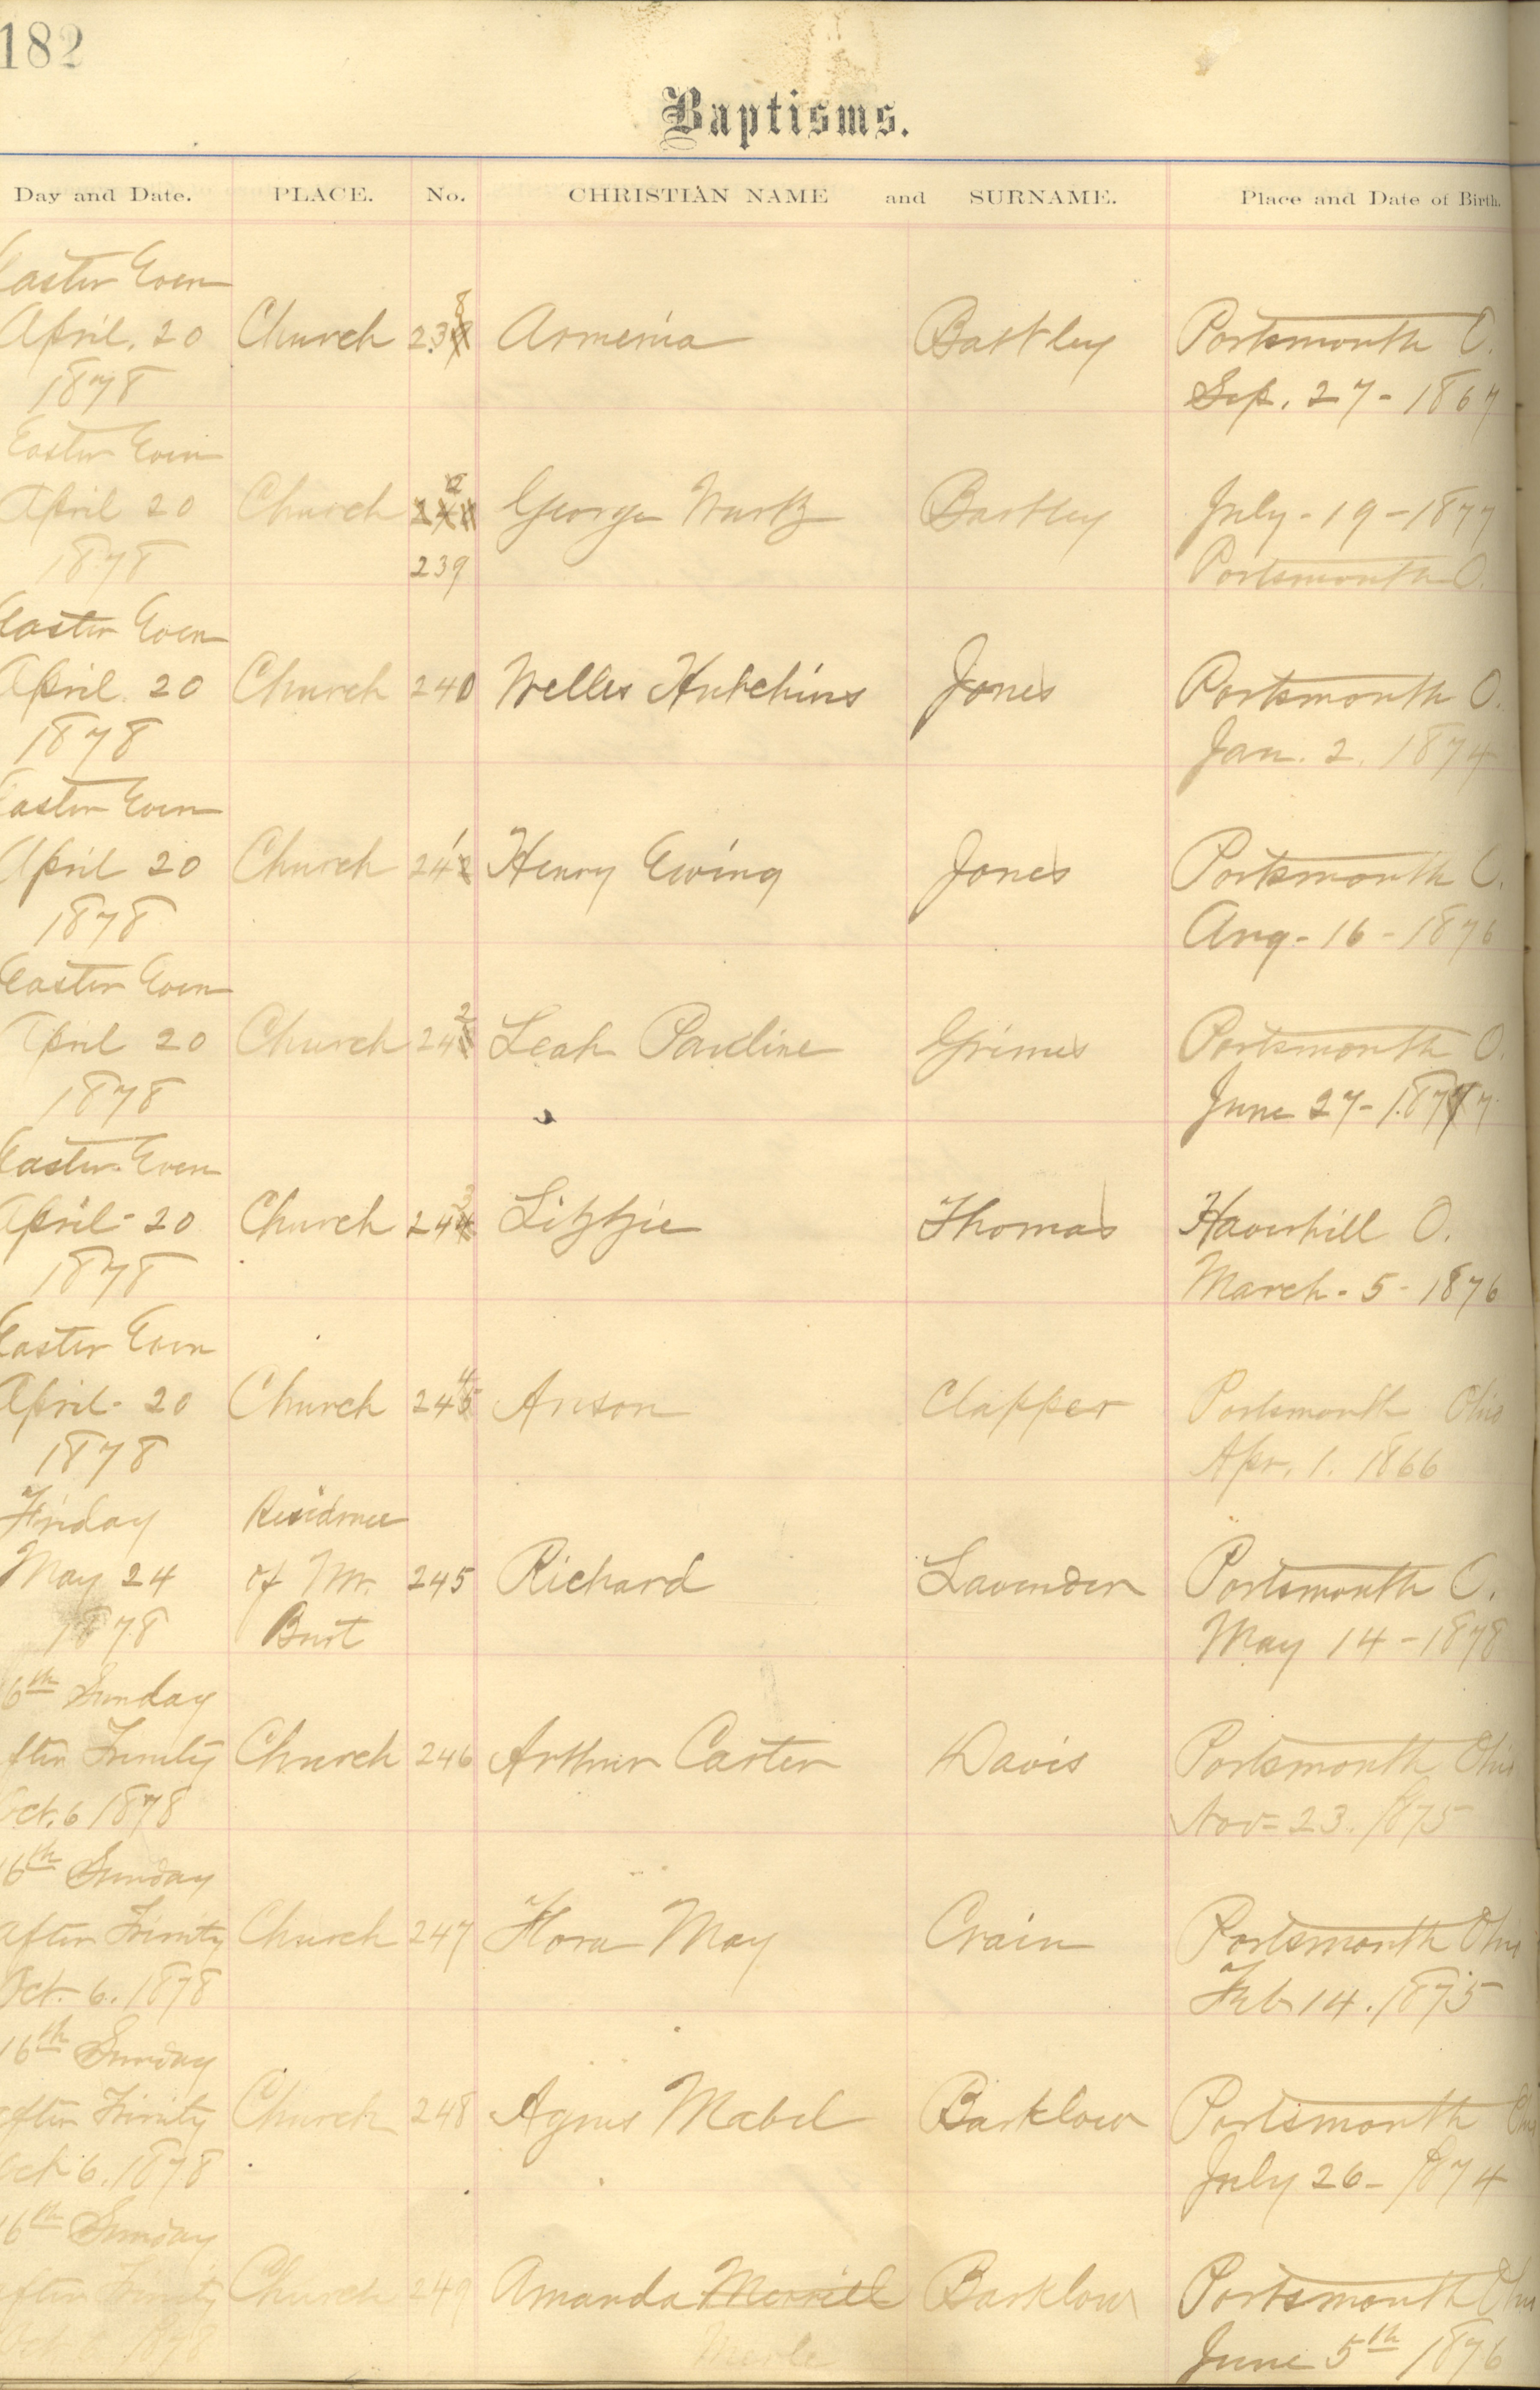 182
Baptisms.
Day and Date. PLACE. No. CHRISTIAN NAME and SURNAME. Place and Date of Birth.
Easter Even
April. 20 Church 238 Armenia Bartley Portsmouth O.
1878 Sep. 27 - 1867
Easter Even
April 20 Church George Wurtz Bartley July - 19 - 1877
1878 239 Portsmouth O.
Easter Even
April. 20 Church 240 Welles Hutchins Jones Portsmouth O.
1878 Jan. 2. 1874
Easter Even
April 20 Church 241 Henry Ewing Jones Portsmouth O.
1878 Aug - 16 - 1876
Easter Even
April 20 Church 242 Leah Pauline Grimes Portsmouth O.
1878 June 27 - 1877
Easter Even
April - 20 Church 243 Lizzie Thomas Haverhill O.
1878 March - 5 - 1876
Easter Even
April - 20 Church 244 Anson Clapper Portsmouth Ohio
1878 Apr. 1. 1866
Friday Residence
May 24 of Mr. 245 Richard Lavender Portsmouth O.
1878 May 14 - 1878
6th Sunday
after Trinity Church 246 Arthur Carter Davis Portsmouth Ohio
Oct. 6 1878 Nov - 23. 1875
16th Sunday
after Trinity Church 247 Flora May Crain Portsmouth Ohio
Oct. 6. 1878 Feb 14. 1875
16th Sunday
after Trinity Church 248 Agnes Mabel Barklow Portsmouth Ohio
Oct 6. 1878 July 26 - 1874
16th Sunday
after Trinity Church 249 Amanda Merrill Barklow Portsmouth Ohio
Oct 6 1878 Merle June 5th 1876